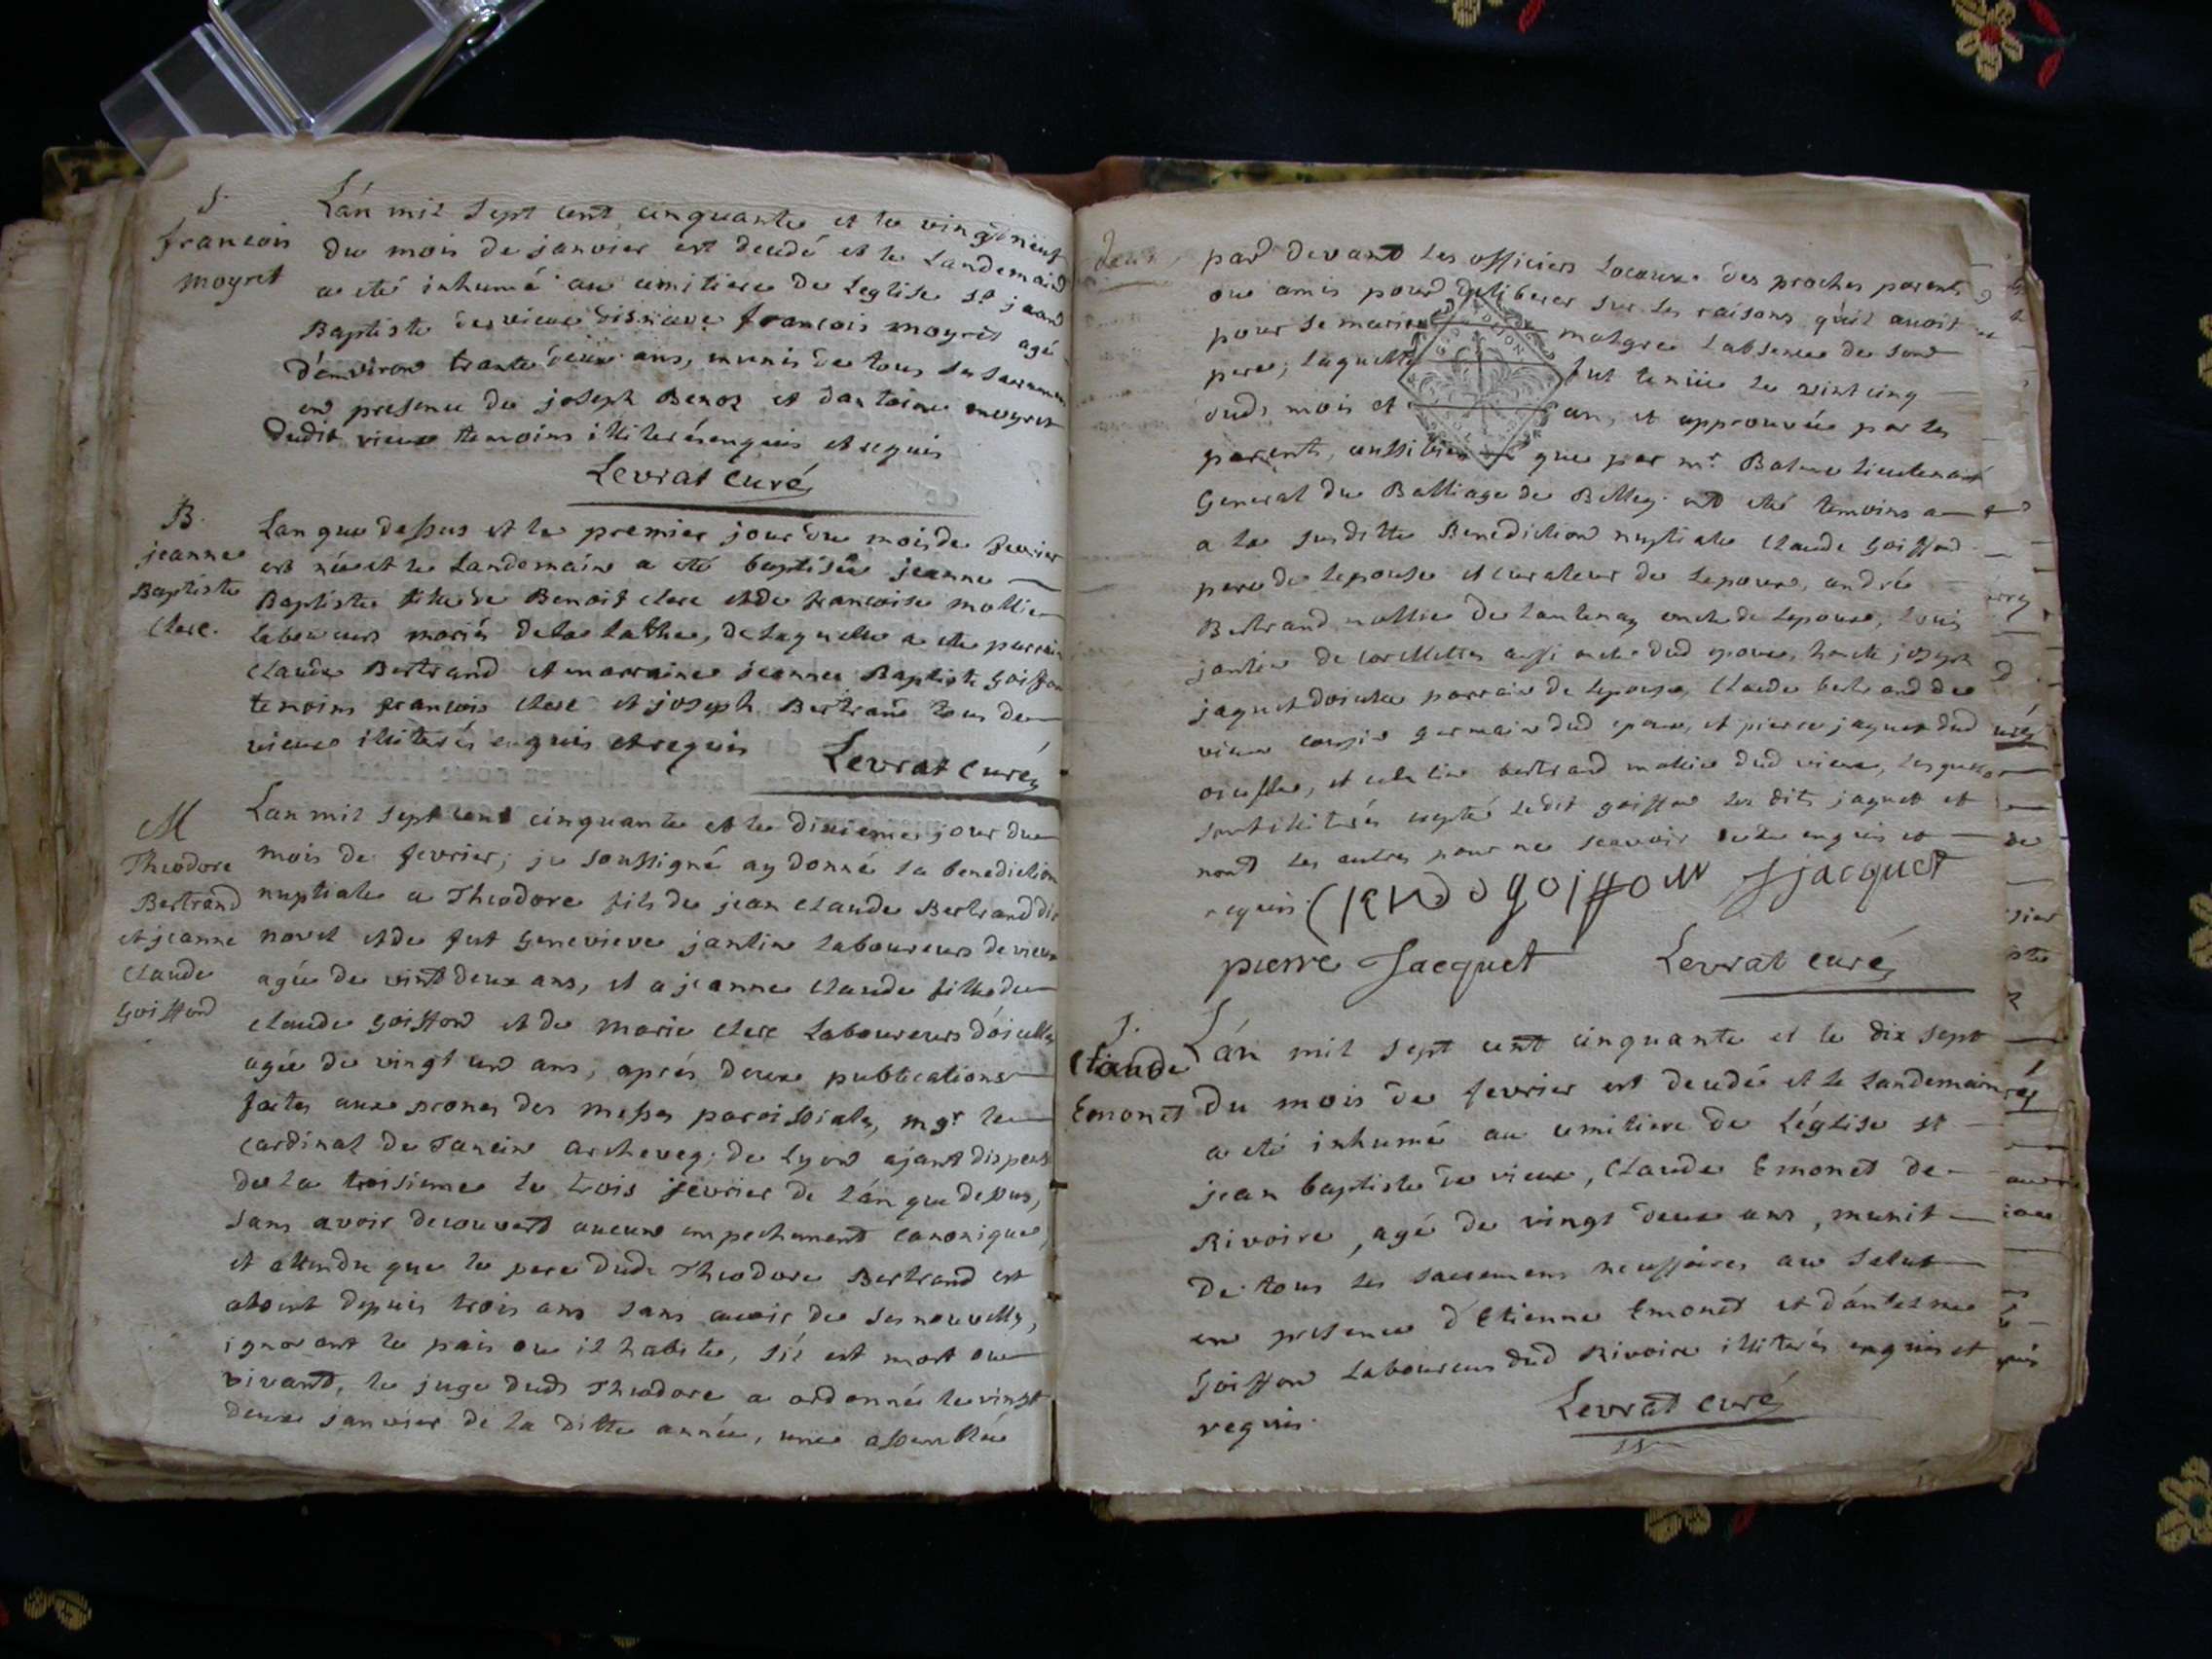 S.
francois
moyret
Lán mil sept cent cinquante et le vingtneuf
du mois de janvier est decedé et le Landemain
a eté inhumé au cimitiere de Leglise st jean
Baptiste de vieux francois moyret agé
d'environ trante deux ans, munis de tous les sacremens
en presence de joseph Benoz et dantoine moyret
dudit vieux temoins illiterés enquis et requis
Levrat curé
B.
jeanne
Baptiste
Clerc.
Lan que dessus et le premier jour du mois de fevrier
est née et le Landemain a eté baptisée jeanne
Baptiste fille de Benoit clerc et de francoise mollie
Laboureurs mariés de la , de laquelle a eté parrain
Claude Bertrand et marraine jeanne Baptiste goiffon
temoins francois clerc et joseph Bertrand tous de
vieux illiterés enquis et requis
Levrat curé
M
Theodore
Bertrand
et jeanne
Claude
Goiffond
Lan mil sept cent cinquante et le dixieme jour du
mois de fevrier; je soussigné ay donné la benediction
nuptiale a Theodore fils de jean claude Bertrand dit
novet et de fut Genevieve jantin laboureurs de vieux
agée de vint deux ans, et a jeanne claude fille de
claude goiffond et de marie clerc Laboureurs dóicella
agée de vingt und ans, aprés deux publications
faites aux prones des messes paroissiales, mgr le
cardinal de Tancin archeveq. de Lyon ajant dispensé
de la troisieme le trois fevrier de lán que dessus,
sans avoir decouvert aucune empechement canonique,
et attendu que le pere dudt Theodore Bertrand est
absent depuis trois ans sans avoir de ses nouvelles,
ignorant le païs ou il habite, sìl est mort ou
vivant, le juge dudt Theodore a ordonnée le vingt
deux janvier de la ditte année, une assemblée
pard devant les officiers locaux des proches parents
ou amis pour deliberer sur les raisons qu'il avoit
pour se marier malgré Labsence de son
pere; laquelle fut tenüe le vint cinq
dudt mois et an, et approuvée par les
parents, aussi bien que par mr. Balme lieutenant
General du Balliage de Belley. ont eté temoins a
a la susditte Benediction nuptiale Claude goiffond
pere de Lepouse et curateur de Lepoux, andré
Bertrand mollie de Lantenay oncle de Lepoux, Louis
jantin de corcellettes aussi oncle dud epoux, joseph
jaquet doicella parrain de Lepouse, Claude bertrand de
vieux cousin germain dud epoux, et pierre jaquet dud
oicella, et bertrand mollie dud vieux, lesquels
sont illiterés excepté ledit goiffon les dits jaquet et
nont les autres pour ne scavoir enquis et
requis. Claudo goiffon J jacquet
pierre Jacquet Levrat curé
S.
Claude
Emonet
Lán mil sept cent cinquante et le dix sept
du mois de fevrier est decedé et le Landemain
a eté inhumé au cimitiere de Léglise st
jean baptiste de vieux, Claude Emonet de
Rivoire, agé de vingt deux ans, munit
de tous les sacremens necessaires au salut
en presence d'Etienne Emonet et d'antelme
Goiffon Laboureurs dud Rivoire illiterés enquis et
requis.
Levrat curé